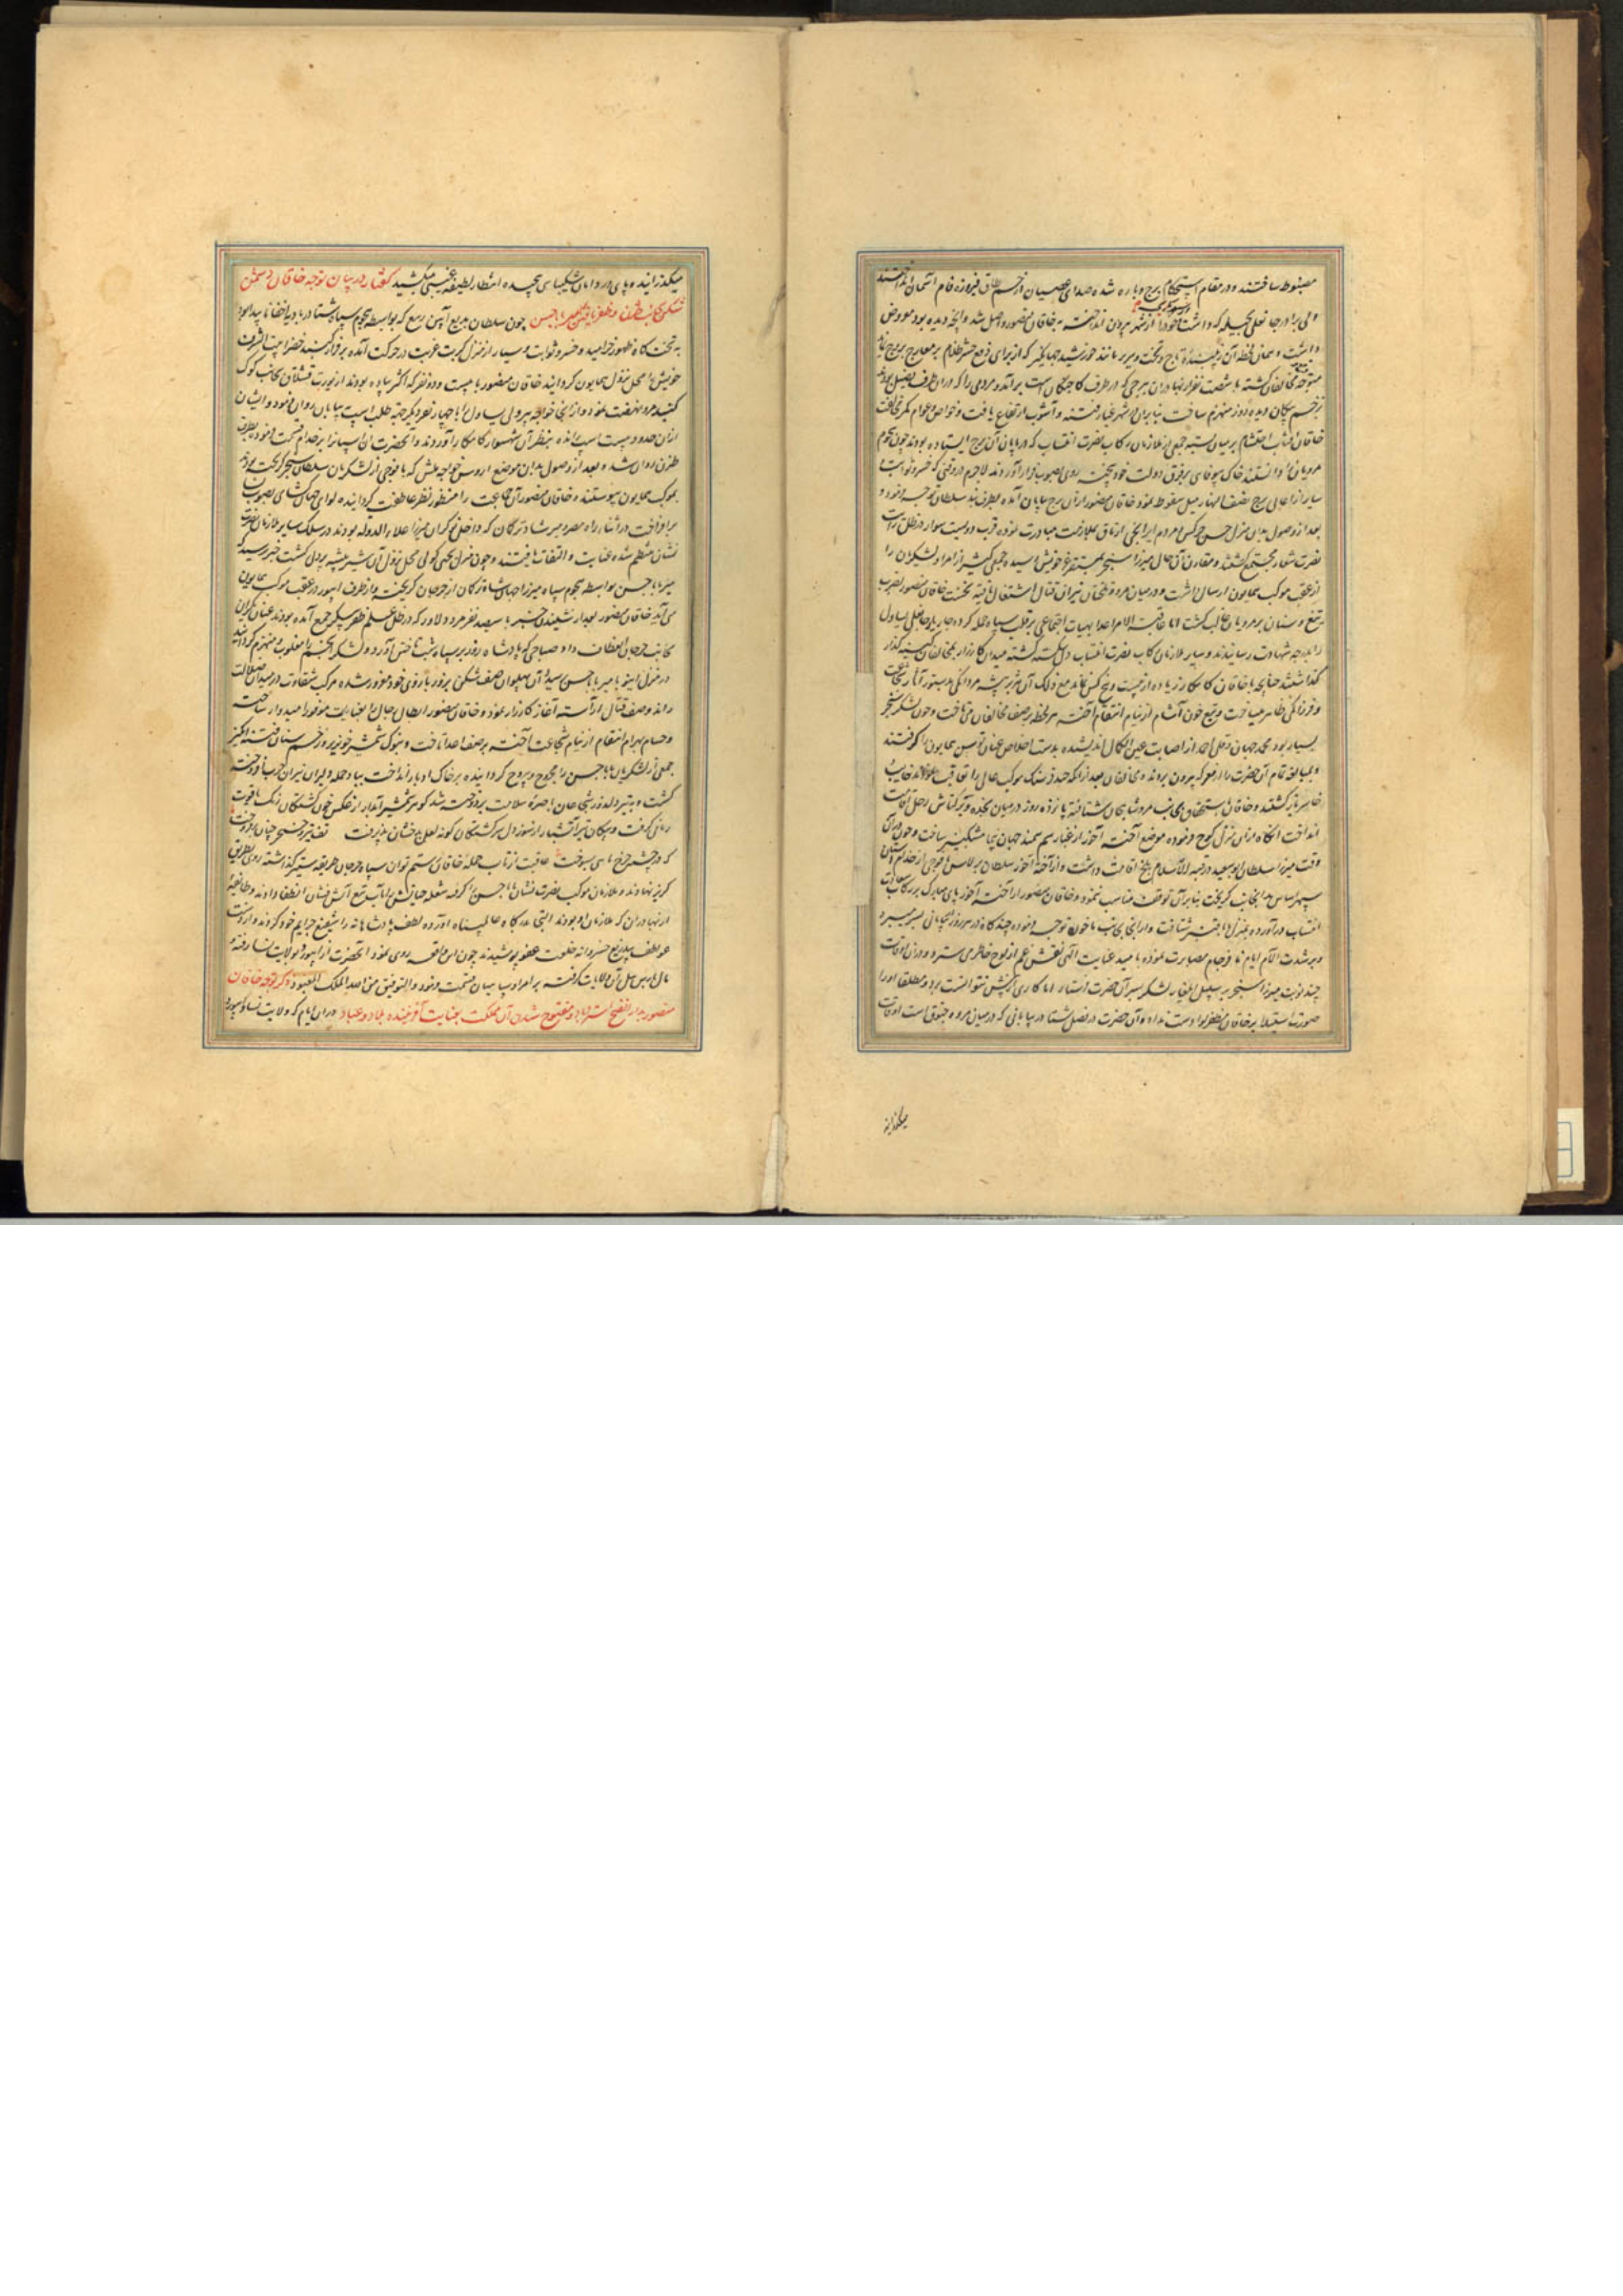 مضبوط ساختند و در مقام استحکام برج و باره شده صدای عصیان از خم طاق فیروزه فام آسمان انداختند
ولی برادر جانعلی بحیله که داشت خود را از شهر بیرون انداخته بخاقان منصور واصل شد و آنچه دیده بود معروض
داشت و همان لحظه آن زیبنده تاج و تخت و سریر مانند خورشید جهانگیر که از برای دفع حشر ظلام بر معارج بروج
متوجه مخالفان کشته با شصت نفر از بهادران ببرجی که در طرف است برآمد و مردمی را که در آن طرف فصیل بودند
بزخم پیکان دیده دوز منهزم ساخت بنابران در شهر غبار فتنه و آشوب ارتفاع یافت و خواص و عوام کمر مخالفت
خاقان احتشام بر میان بسته جمعی از ملازمان رکاب نصرت انتساب که در پایان آن برج ایستاده بودند چون هجوم
مرویان را دانستند خاک بیوفائی بر فرق دولت خود بیخته روی بصوب فرار آوردند لاجرم در وقتی که خسرو ثوابت و
سیار از اعالی برج نصف النهار میل سقوط نمود خاقان منصور از آن برج بپایان آمده بطرف بند سلطان توجه فرمود و
بعد از وصول بدان منزل حسن چرکس با مردم ایرانجی از ملازمت مبادرت نموده قرب دویست سوار در ظل رایت
نصرت شعار مجتمع گشتند و مقارن آن حال میرزا سنجر بمستقر خویش رسیده جمعی کثیر از امرا و لشکریان را
از عقب موکب همایون ارسال داشت و در میان مرو و نیران قتال اشتعال یافته نخست خاقان منصور بضرب
تیغ و سنان بر مرویان غالب گشت اما عاقبة الامر اعدا بهیات اجتماعی بر قلب سپاه حمله کرده جانعلی یساول
را بدرجه شهادت رسانیدند و سایر ملازمان رکاب نصرت انتساب دل شکسته گشته میدان کارزار بمخالفان
گذاشتند چنانچه با خاقان کامکار زیاده از بیست و پنج کس نماند مع ذلک آن هژبر بیشه مردانگی بدستور آثار شجاعت
و فرزانگی ظاهر میساخت و تیغ خون آشام از نیام انتقام آخته هر لحظه بر صف مخالفان می تاخت و چون لشکر سنجر
بسیار بود محمد جهان و قل احمد از اصابت عین الکمال اندیشیده بدست اخلاص عنان توسن همایون را گرفتند
و بمبالغه تمام آن حضرت را از معرکه بیرون بردند و مخالفان بعد از آنکه موکب عالی را تعاقب نمودند خایب و
خاسر باز گشتند و خاقان بجانب مرو شتافته پانزده روز در میان رحل اقامت
انداخت انگاه از آن منزل کوچ فرموده موضع آخته آخور از غبار سم سمند جهان پیما مشکبیز ساخت و چون در آن
وقت میرزا سلطان ابوسعید در قبة الاسلام بلخ اقامت داشت و از آخته آخور سلطان برلاس با فوجی از خدام آستان
سپهر اساس بدانجانب گریخت بنابر آن توقف مناسب ننمود و خاقان منصور از آخته آخور پای مبارک بر رکاب سعادت
انتساب درآورده بمنزل شتافت و از آنجا بجانب توجه فرموده چند گاه در هر روز بیابانی بسر میبرد
و بر شدت الام ایام نافرجام مصابرت نموده بامید عنایت الهی نقش غم از لوح خاطر می سترد و در آن اوقات
چند نوبت میرزا سنجر بسبیل ایلغار لشکر بسر آن حضرت فرستاد اما کاری از پیش نتوانست برد و مطلقا او را
صورت استیلا بر خاقان مظفر لوا دست نداد و آن حضرت در فصل شتا در بیابانی که در میان مرو و خیوق است اوقات
میگذرانید
میگذرانید و پای در دامان شکیبائی پیچیده انتظار لطیفه غیبی میکشید گفتار در بیان توجه خاقان دشمن
شکن بجانب و ظفر یافتن بر امیر بابا حسن چون سلطان بدیع آیین ربیع که بواسطه هجوم سپاه شتا در بادیه اختفا ناپیدا بود
به تخت گاه ظهور خرامید و خسرو ثوابت و سیار از منزل کربت غربت در حرکت آمده بر فراز گنبد خضرا بیت الشرف
خویش را محل نزول همایون گردانید خاقان منصور با بیست و دو نفر که اکثر پیاده بودند از یورت قشلاق بجانب کوک
گنبد مرو نهضت نمود و از آنجا خواجه پیر ولی یساول را با چهار نفر دیگر جهة طلب اسب بپایان روان فرمود و ایشان
از آن حدود بیست اسپ رانده بنظر آن شهسوار کامکار آوردند و آنحضرت آن اسپانرا بر خدام قسمت فرمود بطرف
طژن روان شد و بعد از وصول بدان موضع اروس خواجه با فوجی از لشکریان سلطان سنجر گریخته بودند
بموکب همایون پیوستند و خاقان منصور آن جماعت را منظور نظر عاطفت گردانیده لوای جهان گشای بصوب نسا
برافراخت در اثناء راه مصر و میر شاد ترکان که داخل نوکران میرزا علاء الدوله بودند در سلک سایر ملازمان نصرت
نشان منتظم شده عنایت و التفات یافتند و چون منزل محل نزول آن شیر بیشه پردلی گشت خبر رسید که
میر بابا حسن بواسطه هجوم سپاه میرزا جهان شاه ترکمان از جرجان گریخته و از طرف ابیورد در عقب موکب همایون
می آید خاقان منصور بعد از شنیدن خبر با سیصد نفر مرد دلاور که در ظل علم ظفر پیکر جمع آمده بودند عنان یکران
بجانب جرجان انعطاف داد و صباحی که پادشاه روز بر سپاه شب تاختن آورد و لشکر انجم را مغلوب و منهزم گردانید
در منزل با میر بابا حسن رسید آن پهلوان صف شکن بزور بازوی خود مغرور شده مرکب شقاوت در میدان ضلالت
راند و صف قتال آراسته آغاز کارزار نمود و خاقان منصور ابطال رجال را بعنایات موفور امیدوار ساخته
و حسام بهرام انتقام از نیام شجاعت آخته بر صف اعدا تاخت و بنوک شمشیر خونریز و زخم سنان فتنه انگیز
جمعی از لشکریان بابا حسن را مجروح و بیروح گردانیده بر خاک ادبار انداخت بباد حمله دلیران نیران حرب افروخته
گشت و به تیر دلدوز شجاعان باصره سلامت بردوخته شد گوهر شمشیر آبدار از عکس خون کشتگان رنگ یاقوت
رمانی گرفت و پیکان تیر آتشبار از سوز دل سرگشتگان گونه لعل بدخشان پذیرفت
که در چشم چرخ ماهی بسوخت عاقبت از تاب حمله خاقان رستم توان سپاه جرجان طریقه ستیز گذاشته روی بطریق
گریز نهادند و ملازمان موکب نصرت نشان بابا حسن را گرفته شعله حیاتش را بآب تیغ آتش فشان انطفا دادند و طایفه
از بهادران که ملازمان او بودند التجا بدرگاه عالم پناه آورده لطف پادشاهانه را شفیع جرایم خود کردند و از
عواطف بیدریغ خسروانه خلعت عفو پوشیدند چون این واقعه روی نمود آنحضرت از ابیورد بولایت نسا رفته و
مال از اهل آن ولایات گرفته بر امرا و سپاهیان قسمت فرمود والتوفیق من الله الملک المعبود ذکر توجه خاقان
منصور بعزم تسخیر استراباد و مفتوح شدن آن مملکت بعنایت آفریننده بلاد و عباد در آن ایام که ولایت نسا و ابیورد